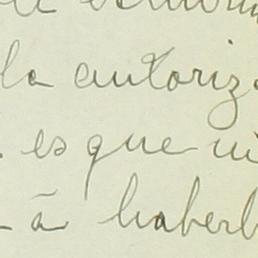 la autoriz
es que
à haberl